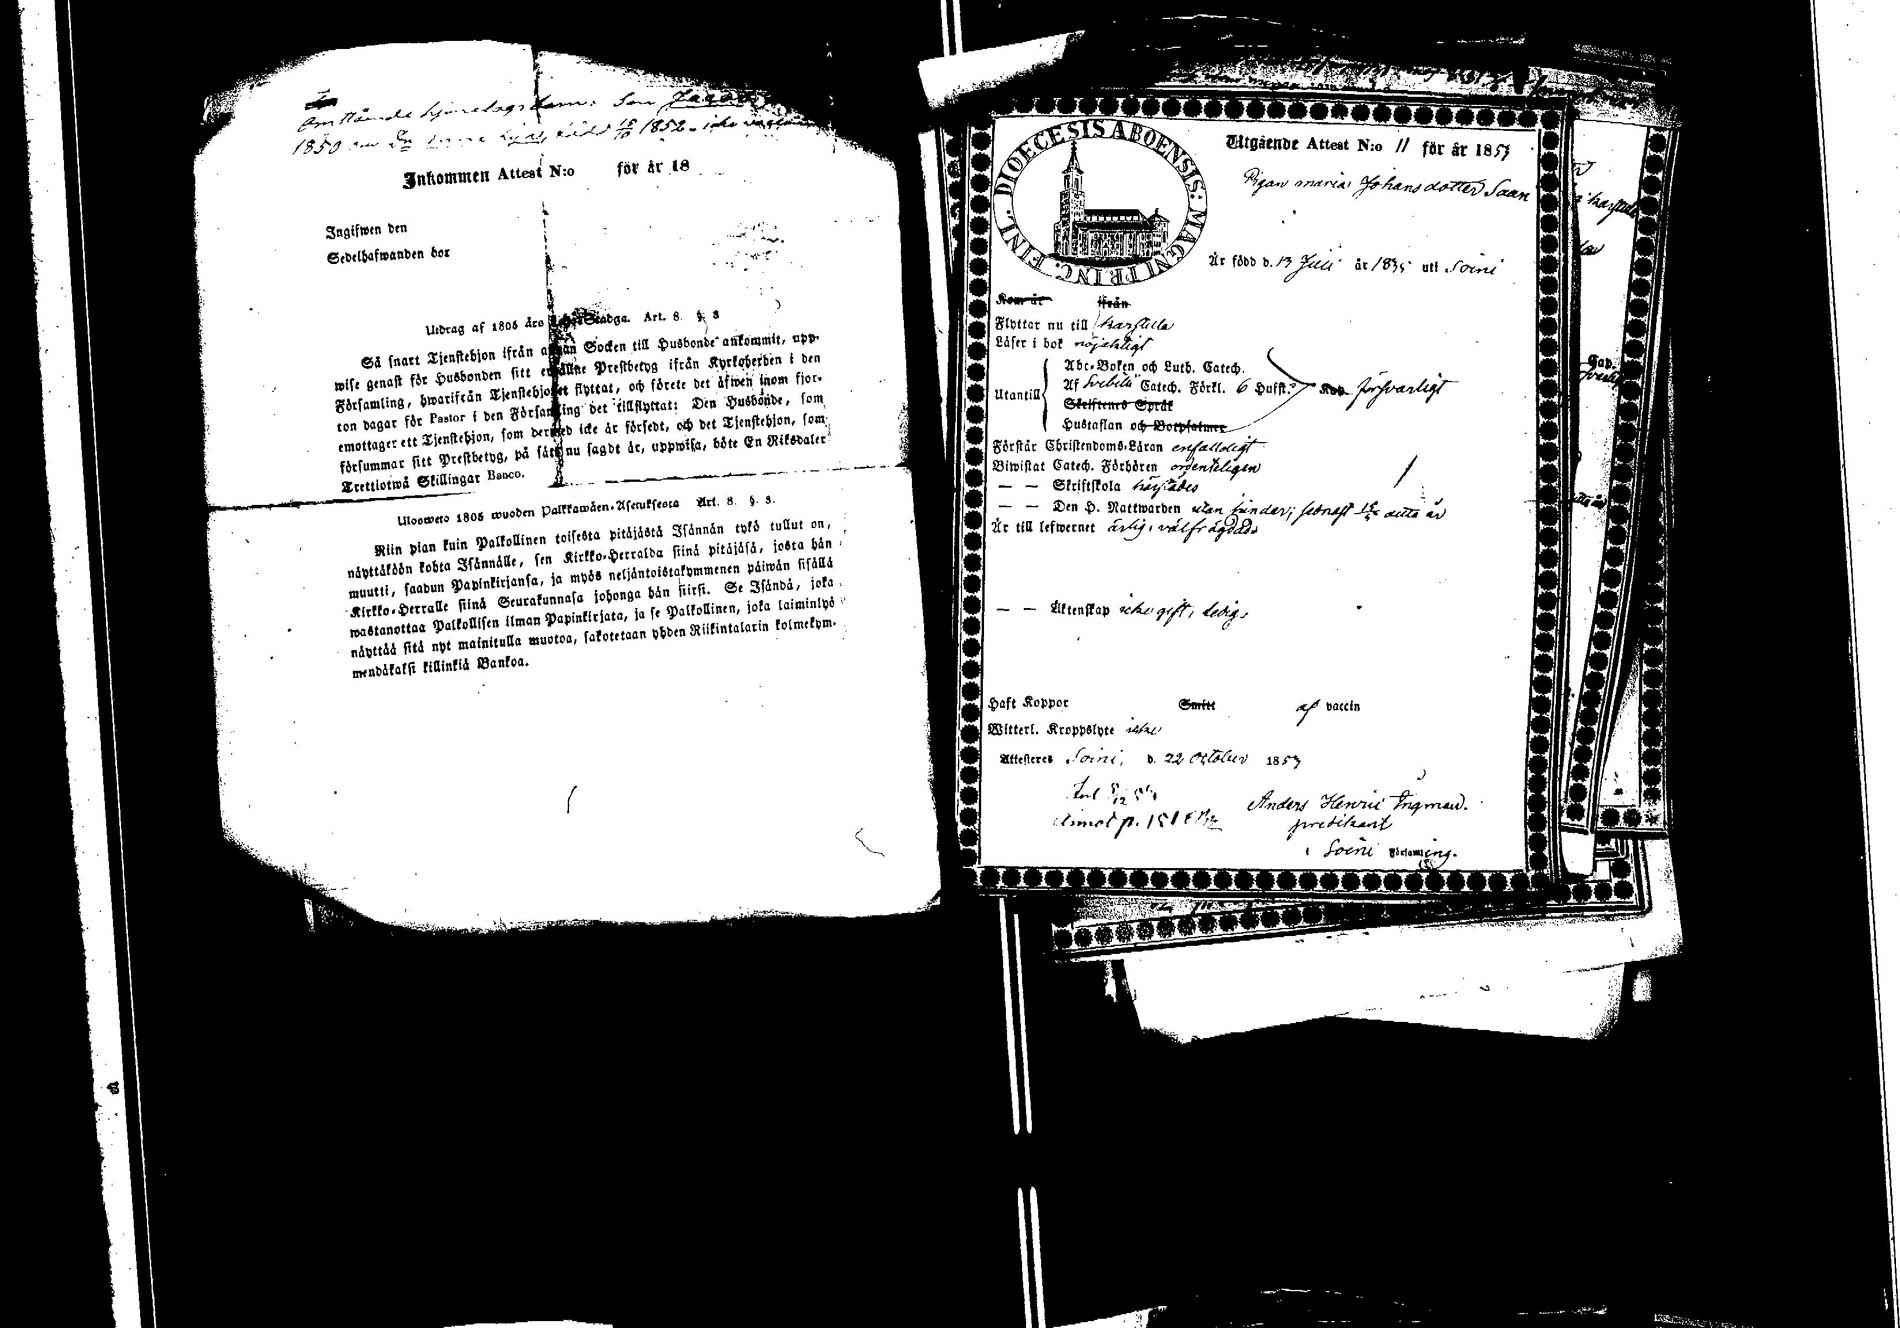 Omstående hjonelags barn: Son
1850 och född 15/10 1852 - icke
Inkommen Attest N:o för år 18
Ingifwen den
Sedelhafwanden bor
Utdrag af 1805 års Stadga. Art. 8. §. 3
Så snart Tjenstehjon ifrån annan Socken till Husbonde ankommit, upp-
wise genast för Husbonden sitt Prestbetyg ifrån Kyrkoherden i den
Församling, hwarifrån Tjenstehjonet flyttat, och förete det äfwen inom fjor-
ton dagar för Pastor i den Församling det tillflyttat: Den Husbonde, som
emottager ett Tjenstehjon, som dermed icke är försedt, och det Tjenstehjon, som
försummar sitt Prestbetyg, på sätt nu sagdt är, uppwisa, böte En Riksdaler
Trettiotwå Skillingar Banco.
Uloosweto 1805 wuoden Palkkawäen-Asetuksesta Art. 8. §. 3.
Niin pian kuin Palkollinen toisesta pitäjästä Isännän tykö tullut on,
näyttäköön kohta Isännälle, sen Kirkko-Herralda siinä pitäjäsä, josta hän
muutti, saadun Papinkirjansa, ja myös neljäntoistakymmenen päiwän sisällä
Kirkko-Herralle siinä Seurakunnasa johonga hän siirsi. Se Isändä, joka
wastanottaa Palkollisen ilman Papinkirjata, ja se Palkollinen, joka laiminlyö
näyttää sitä nyt mainitulla muotoa, sakotetaan yhden Riikintalarin kolmekym-
mendäkaksi killinkiä Bankoa.
DIOECESIS ABOENSIS: MAGNI PRINC. FINL.
Utgående Attest N:o 11 för år 1857
Pigan Maria Johansdotter Saan
Är född d. 13 Juli år 1835 uti Soini
Kom år ifrån
Flyttar nu till Karstula
Läser i bok nöjaktigt
Utantill
Abc-Boken och Luth. Catech.
Af Svebelii Catech. Förkl. 6 Hufst. försvarligt
Skriftenes Språk
Hustaflan och Botpsalmer
Förstår Christendoms-Läran enfaldeligt
Biwistat Catech. Förhören ordenteligen
— — Skriftskola härstädes
— — Den H. Nattwarden utan hinder, senast detta år
Är till lefwernet ärlig, välfrägdad
— — Äktenskap icke gift, ledig,
Haft Koppor Smitt af vaccin
Witterl. Kroppslyte icke
Attesteres Soini, d. 22 October 1857
Anders Henric Ingman.
predikant
i Soini Församling.